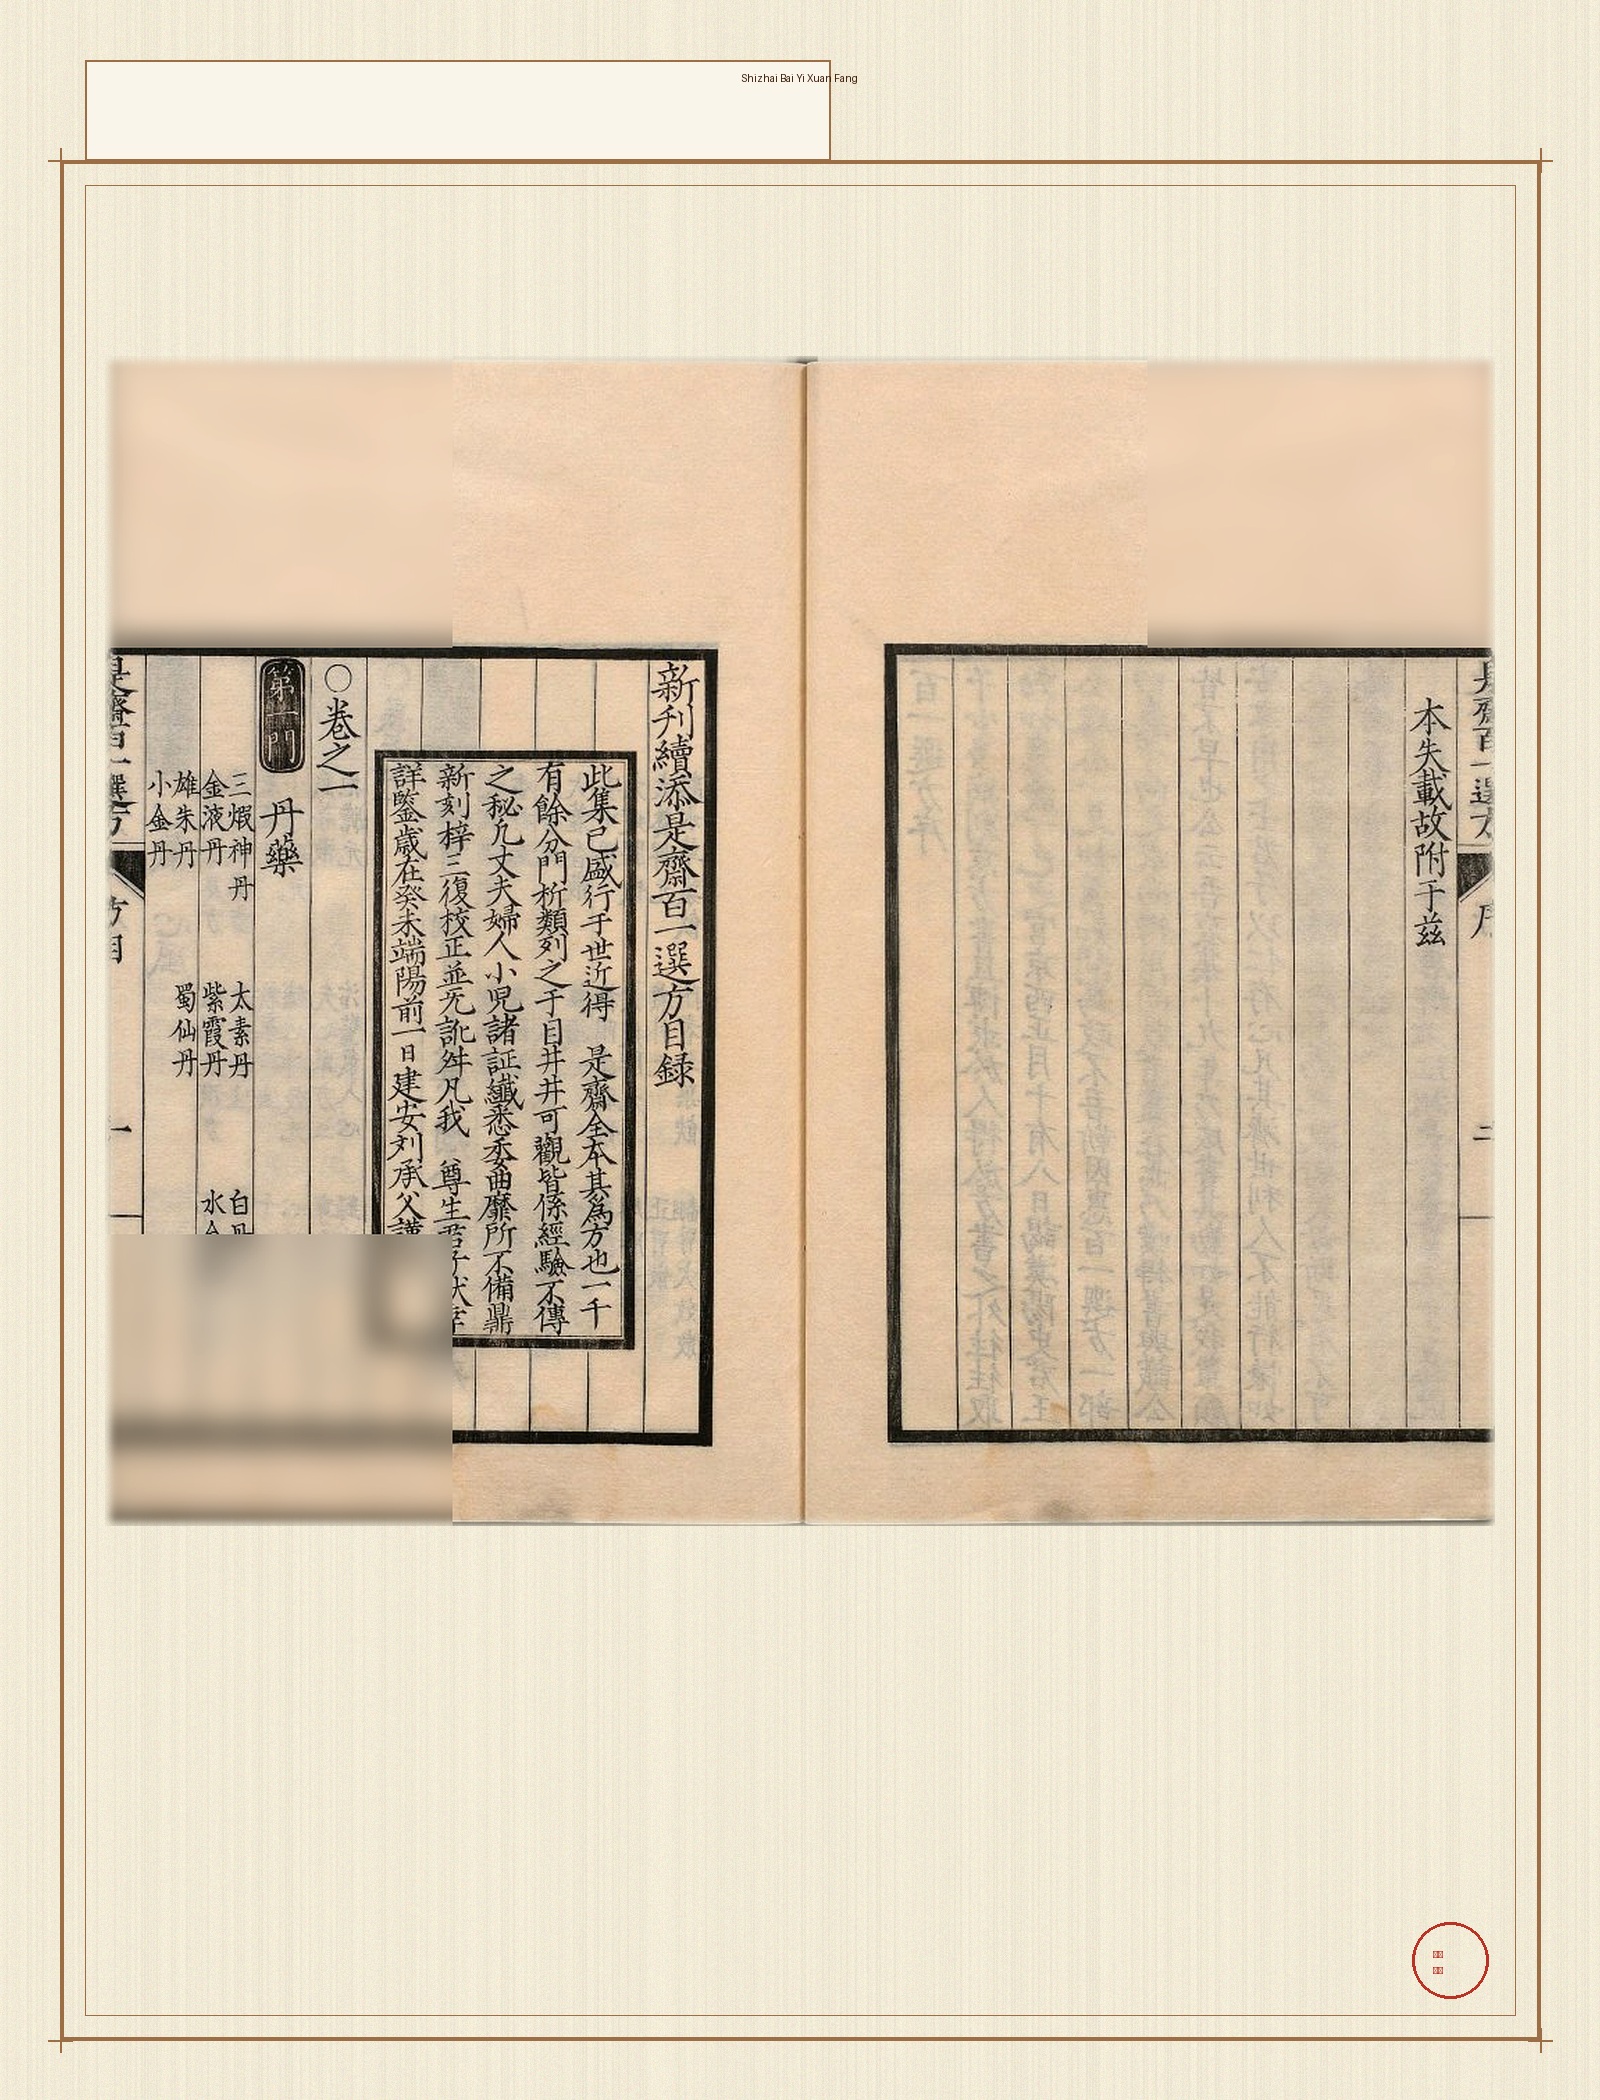 Shizhai Bai Yi Xuan Fang
本失載故附于茲
新刋續添是齋百一選方目録
此集已盛行于世近得 是齋全本其為方也一千
有餘分門析類列之于目井井可觀皆係經驗不傳
之秘凡丈夫婦人小児諸証纖悉委曲靡所不備鼎
新刻梓三復校正並无訛舛凡我 尊生君子伏幸
詳鑒歳在癸未端陽前一日建安刘承父謹
○卷之一
第一門 丹藥
三煆神丹 太素丹 白丹
金液丹 紫霞丹 水
雄朱丹 蜀仙丹
小金丹
是齋百一選方 方目 一